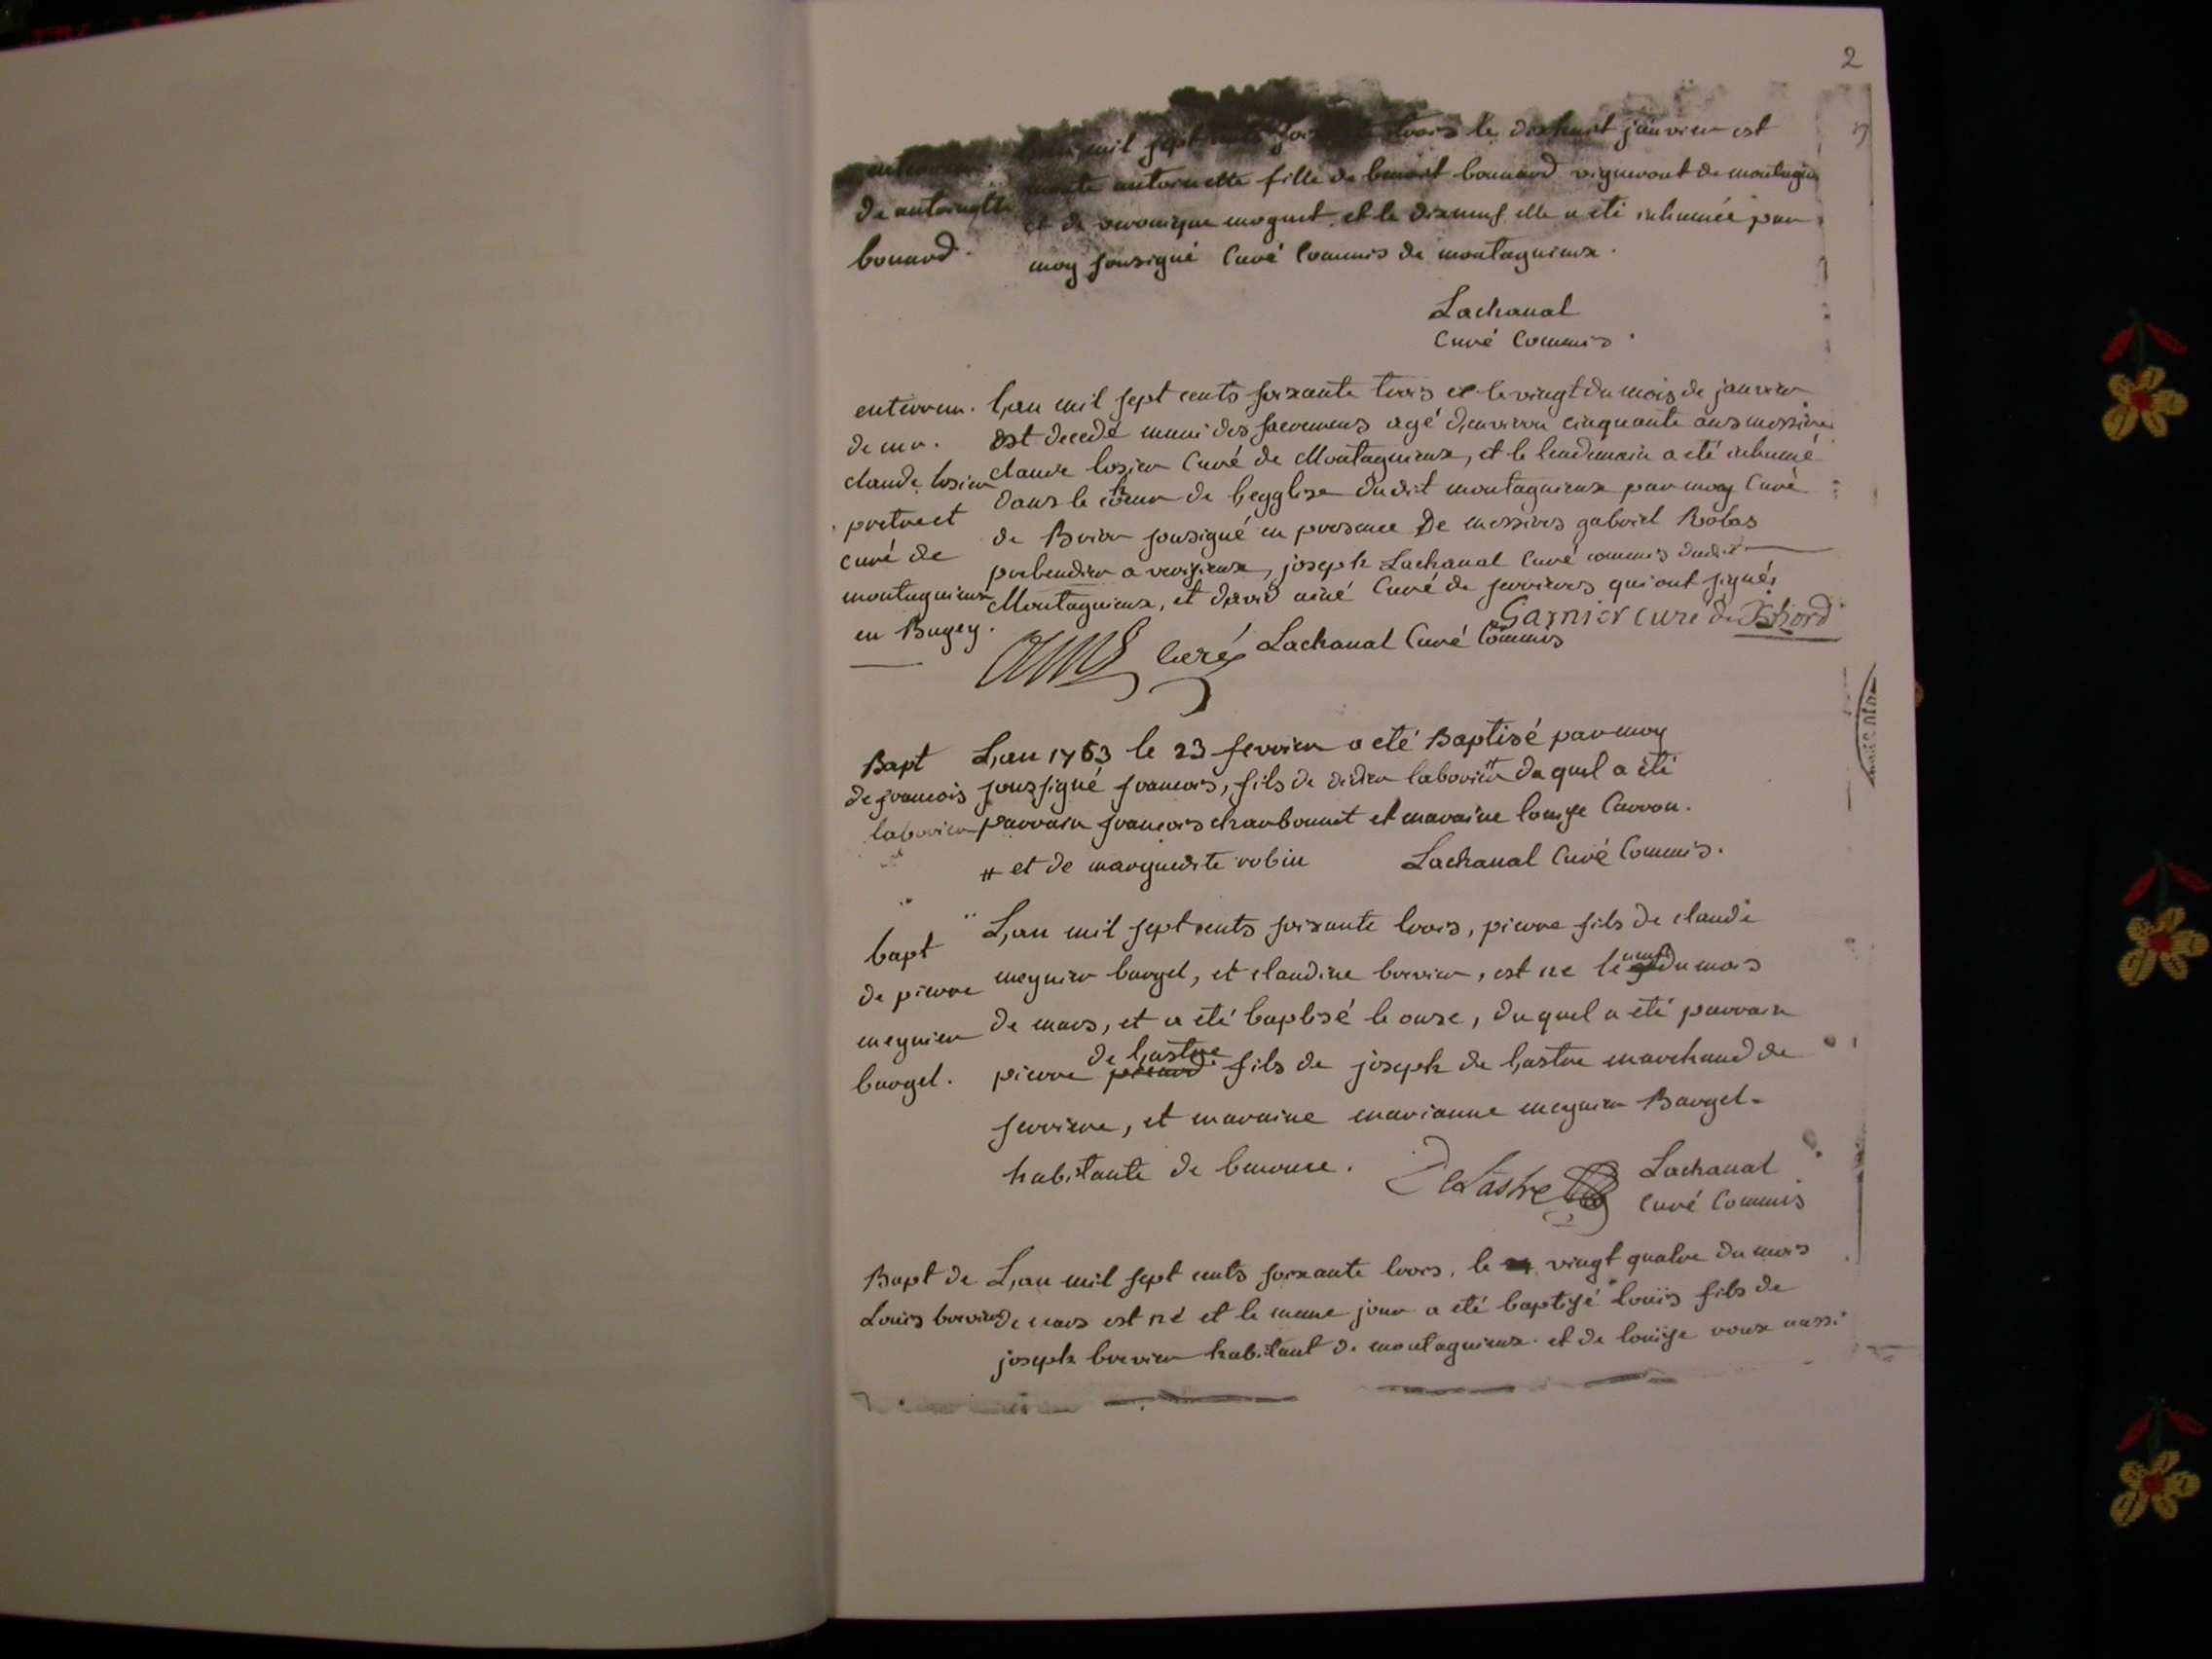 2
L,an mil sept cents soixante trois le dixhuit janvier est
enterrem.
morte antoinette fille de benoit bonnard vigneront de montagnieu
de antoinette
et de veronique moguet et le dixneuf elle a eté inhumée par
bonard.
moy sousigné Curé Commis de montagnieux.
Lachanal
Curé Commis.
enterrem. L,an mil sept cents soixante trois et le vingt du mois de janvier
de mr. est decedé muni des sacremens agé d,environ cinquante ans messire
claude losier claude losier Curé de Montagnieux, et le lendemain a eté inhumé
pretre et dans le choeur de l,egglise dudit montagnieux par moy Curé
curé de de Brior sousigné en presence De messires gabriel Robas
montagnieux prebendier a verizieux, joseph Lachanal Curé commis dudit
en Bugey. Montagnieux, et david aimé Curé de serrieres qui ont signés
Garnier curé de
curé Lachanal Curé Commis
Bapt L,an 1763 le 23 fevrier a eté Baptisé par moy
de francois soussigné francois, fils de didier laborier # duquel a eté
laborier parrain francois charbonnet et maraine louise Carron.
# et de marguerite robin Lachanal Curé Commis.
bapt L,an mil sept cents soixante trois, pierre fils de claude
de pierre meynier bargel, et claudine brevier, est ne le neuf du mois
meynier de mars, et a eté baptisé le onze, duquel a eté parrain
bargel. pierre de l,astre fils de joseph de l,astre marchand de
serriere, et maraine marianne meynier Bargel
habitante de benonce. DeLastre Lachanal
Curé Commis
Bapt de L,an mil sept cents soixante trois, le 24 vingt quatre du mois
Louis brevier de mars est né et le meme jour a eté baptisé louis fils de
joseph brevier habitant de montagnieux et de louise roux aussi